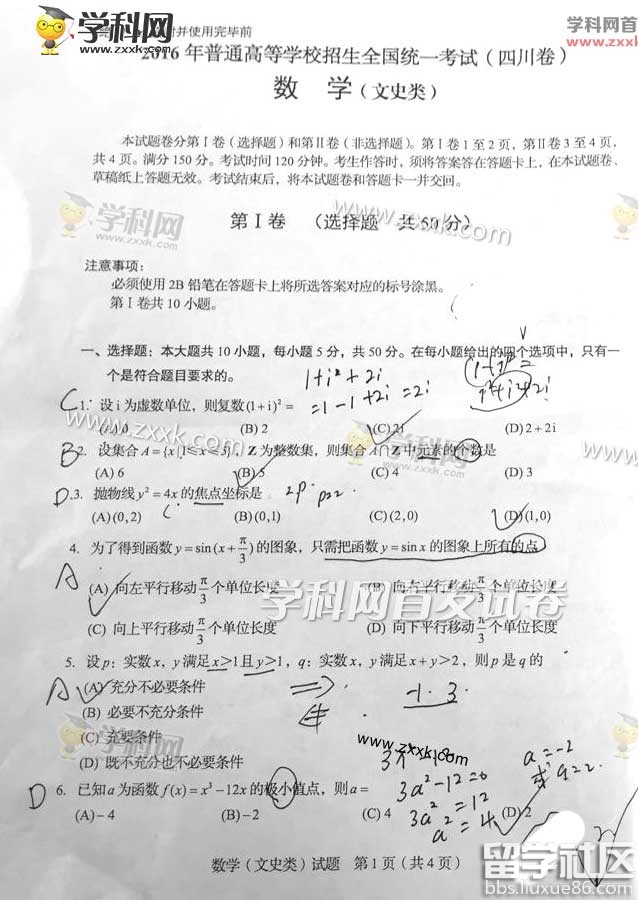 学科网
www.zxxk.com
学科网
www.zxxk.co
附并使用完毕前
2016 年普通高等学校招生全国统一考试(四川卷)
数 学(文史类)
本试题卷分第Ⅰ卷(选择题)和第Ⅱ卷(非选择题)。第Ⅰ卷 1 至 2 页,第Ⅱ卷 3 至 4 页,
共 4 页。满分 150 分。考试时间 120 分钟。考生作答时,须将答案答在答题卡上,在本试题卷、
草稿纸上答题无效。考试结束后,将本试题卷和答题卡一并交回。
学科网
www.zxxk.com
学科网
www.zxxk.com
第Ⅰ卷 (选择题 共 50 分)
注意事项:
必须使用 2B 铅笔在答题卡上将所选答案对应的标号涂黑。
第Ⅰ卷共 10 小题。
一、选择题:本大题共 10 小题,每小题 5 分,共 50 分。在每小题给出的四个选项中,只有一
个是符合题目要求的。
1+i²+2i
C 1. 设 i 为虚数单位,则复数(1+i)²= =1-1+2i=2i
(A) 0 (B) 2 (C) 2i (D) 2+2i
www.zxxk.com
学科网
www.zxxk.com
B 2. 设集合 A={x|1≤x≤5},Z 为整数集,则集合 A∩Z 中元素的个数是
(A) 6 (B) 5 (C) 4 (D) 3
D 3. 抛物线 y²=4x 的焦点坐标是 2p p=2
(A) (0,2) (B) (0,1) (C) (2,0) (D) (1,0)
4. 为了得到函数 y=sin(x+π/3) 的图象,只需把函数 y=sin x 的图象上所有的点
A
(A) 向左平行移动 π/3 个单位长度 (B) 向右平行移动 π/3 个单位长度
学科网首发试卷
(C) 向上平行移动 π/3 个单位长度 (D) 向下平行移动 π/3 个单位长度
5. 设 p:实数 x,y 满足 x>1 且 y>1,q:实数 x,y 满足 x+y>2,则 p 是 q 的
A (A) 充分不必要条件 ⇒ -1.3
(B) 必要不充分条件
(C) 充要条件
(D) 既不充分也不必要条件
学科网
www.zxxk.com
www.zxxk.com
a=-2
或a=2
D 6. 已知 a 为函数 f(x)=x³-12x 的极小值点,则 a=
3a²-12=0
(A) -4 (B) -2 (C) 4 (D) 2
3a²=12
a²=4
数学(文史类)试题 第 1 页(共 4 页)
留学社区
bbs.liuxue86.com